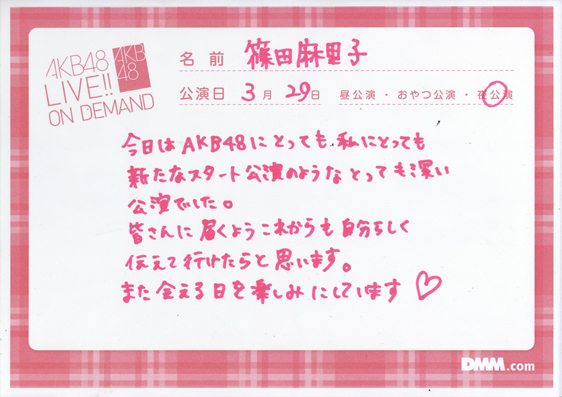 AKB48
LIVE!!
ON DEMAND
AKB
48
名前 篠田麻里子
公演日 3月29日 昼公演・おやつ公演・夜公演
今日はAKB48にとっても、私にとっても
新たなスタート公演のようなとっても深い
公演でした。
皆さんに届くようこれからも自分らしく
伝えて行けたらと思います。
また会える日を楽しみにしています♡
DMM.com